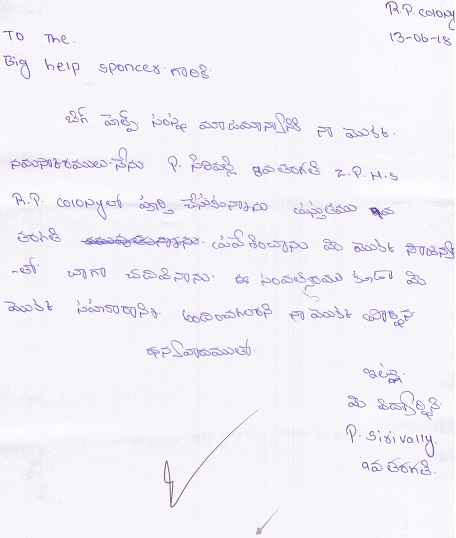 R.P. COLONY
13-06-18
To The.
Big help sponcer గారికి
బిగ్ హెల్ప్ సంస్థ మాయాజమాన్యానికి నా యొక్క
నమస్కారములు. నేను P. సిరివల్లి 8వ తరగతి Z.P.H.S
R.P. COLONY లో పూర్తి చేసుకున్నాను ప్రస్తుతము 9వ
తరగతి ప్రవేశించాను మీ యొక్క సాయం
-తో బాగా చదివినాను. ఈ సంవత్సరము కూడా మీ
యొక్క సహకారాన్ని అందించగలరని నా యొక్క ప్రార్థన
ధన్యవాదములతో
ఇట్లు,
మీ విద్యార్థిని
P. Sirivally.
9వ తరగతి.